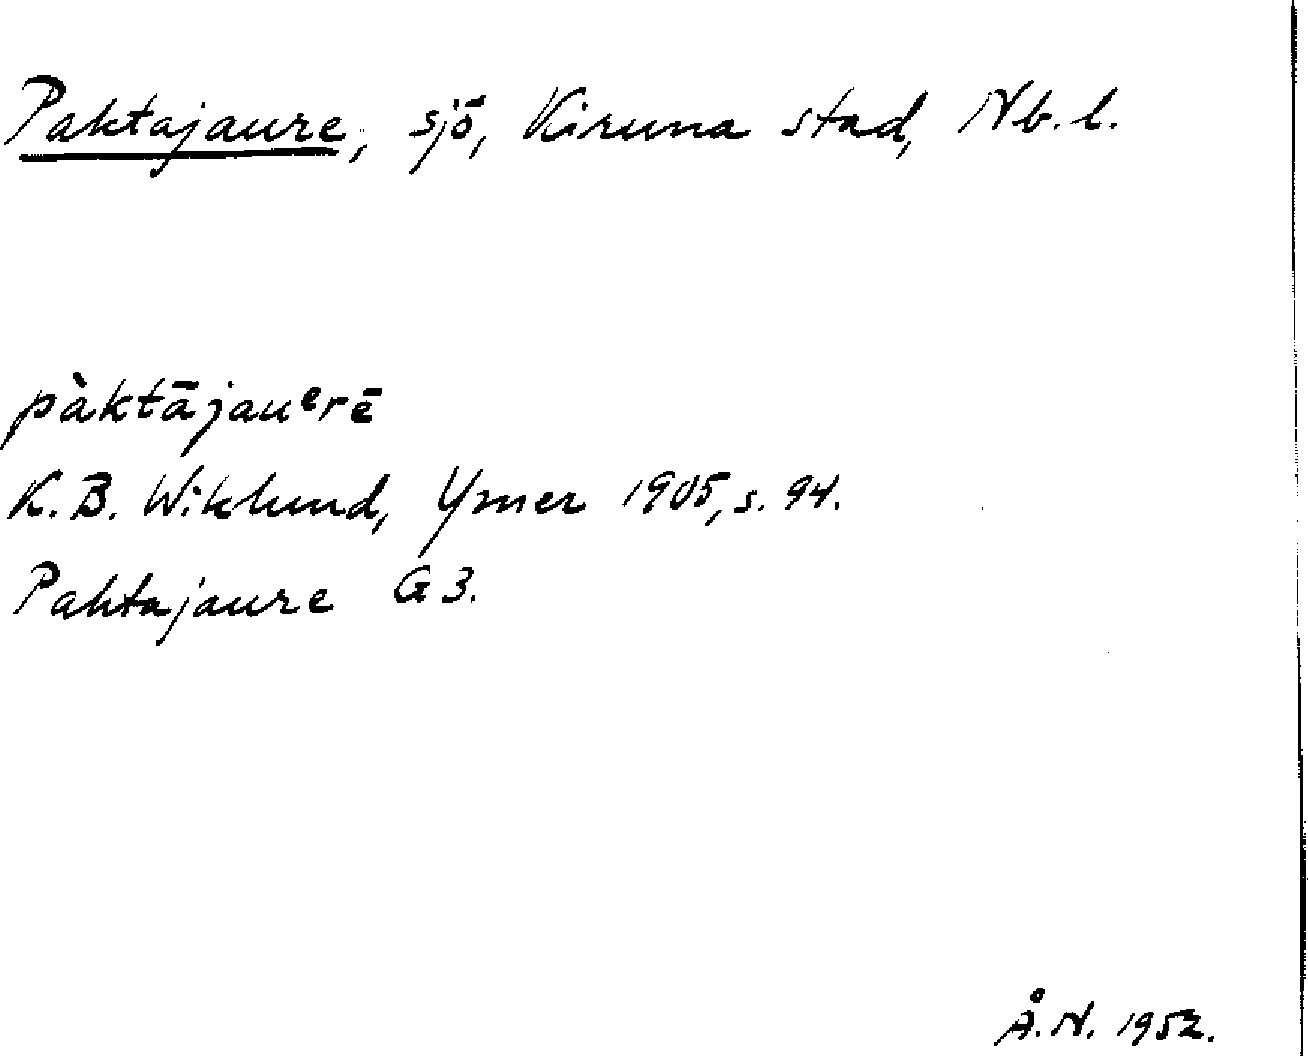 Paktajaure, sjö, Kiruna stad, Nb. l.
pàktājauᵉrē
K. B. Wiklund, Ymer 1905, s. 94.
Paktajaure G 3.
Å. N. 1952.